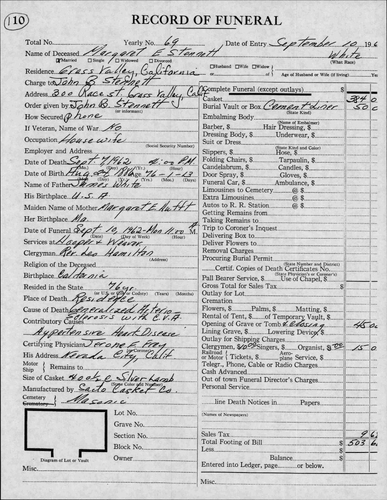 110
RECORD OF FUNERAL
Total No. Yearly No. 69 Date of Entry September 10, 196
Name of Deceased Margaret E Stennett White
Married Single Widowed Divorced (What Race)
Residence Grass Valley, California Husband Wife Widow of
Charge to John B Stennett Age of Husband or Wife (if living) Years
Address 300 Race St. Grass Valley, Calif
Order given by John B. Stennett
How Secured phone
If Veteran, Name of War No
Occupation Housewife
(Social Security Number)
Employer and Address
Date of Death Sept 7 1962 M.
Date of Birth
Name of Father James White
His Birthplace U.S.A
Maiden Name of Mother Margaret E
Her Birthplace Mo.
Date of Funeral Sept 10, 1962 Mon
Services at Hooper & Weaver
Clergyman Rev. Leo Hamilton
Religion of the Deceased
Birthplace California
Resided in the State 76 yr
Place of Death Residence
Cause of Death Generalized Arterio
Sclerosis with C.V.A
Contributory Causes
Hypertensive Heart Disease
Certifying Physician Jerome E Frey
His Address Nevada City, Calif
Motor Ship Remains to
Size of Casket Silver Lamb
Manufactured by Casket Co.
Cemetery Crematory Masonic
Lot No.
Grave No.
Section No.
Block No.
Owner
Diagram of Lot or Vault
Misc.
Complete Funeral (except outlays) $
Casket
Burial Vault or Box Cement liner 50
(State Kind)
Embalming Body
(Name of Embalmer)
Barber, $ Hair Dressing, $
Dressing Body, $ Underwear, $
Suit or Dress
(State Kind and Color)
Slippers, $ Hose, $
Folding Chairs, $ Tarpaulin, $
Candelabrum, $ Candles, $
Door Spray, $ Gloves, $
Funeral Car, $ Ambulance, $
Limousines to Cemetery @ $
Extra Limousines @ $
Autos to R. R. Station @ $
Getting Remains from
Taking Remains to
Trip to Coroner's Inquest
Delivering Box to
Deliver Flowers to
Removal Charges
Procuring Burial Permit
(State Number and District)
Certif. Copies of Death Certificates No.
Pall Bearer Service, $ Use of Chapel, $
Gross Total for Sales Tax $
Outlay for Lot
Removing Remains
Flowers, $ Palms, $ Matting, $
Rental of Tent, $ of Temporary Vault, $
Opening of Grave or Tomb & closing 45
Lining Grave, $ Lowering Device, $
Outlay for Shipping Charges
Clergymen, $ Singers, $ Organist, $ 15
Railroad or Motor Tickets, $ Aeroplane Service, $
Telegr., Phone, Cable or Radio Charges
Cash Advanced
Out of town Funeral Director's Charges
Personal Service
line Death Notices in Papers
(Names of Newspapers)
Sales Tax
Total Footing of Bill $ 503
Less
Balance $
Entered into Ledger, page or below.
Misc.